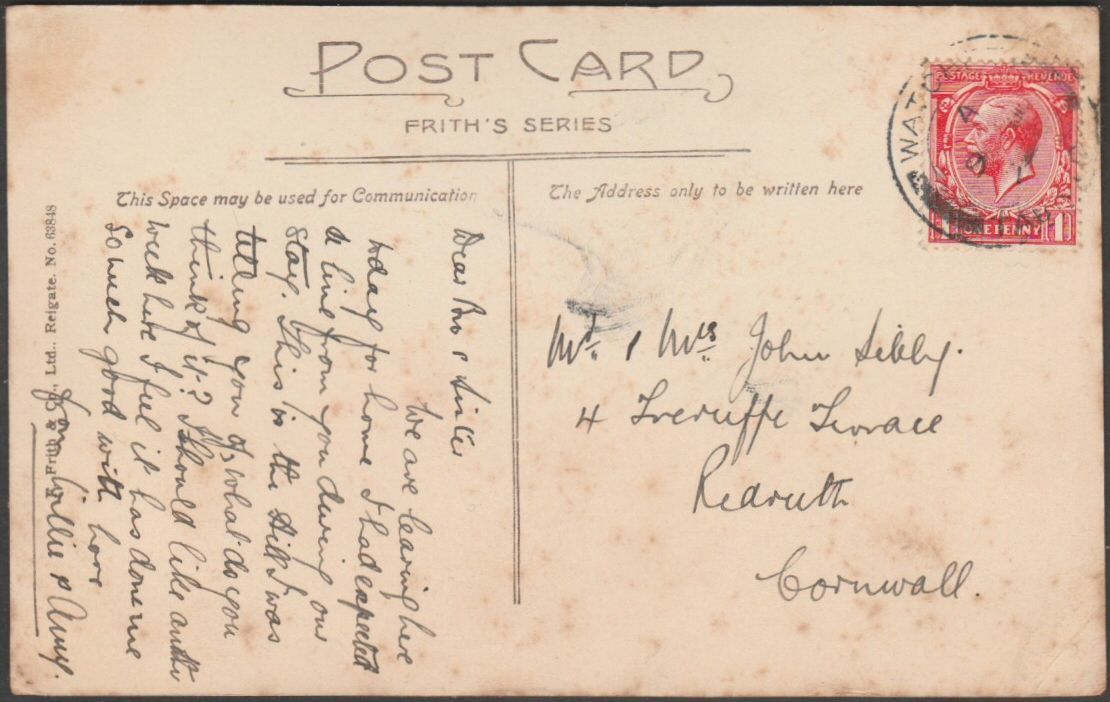 POST CARD
FRITH'S SERIES
This Space may be used for Communication
The Address only to be written here
Dear Bro & Sister
We are leaving here
today for home I had expected
a line from you during our
stay. This is the Hill I was
telling you of, what do you
think of it? I should like another
week here I feel it has done me
so much good with love
from Willie & Amy.
Mr. & Mrs John Sibly.
4 Treruffe Terrace
Redruth
Cornwall.
F. Frith & Co., Ltd., Reigate. No. 63848
POSTAGE REVENUE
ONE PENNY
WATCHET